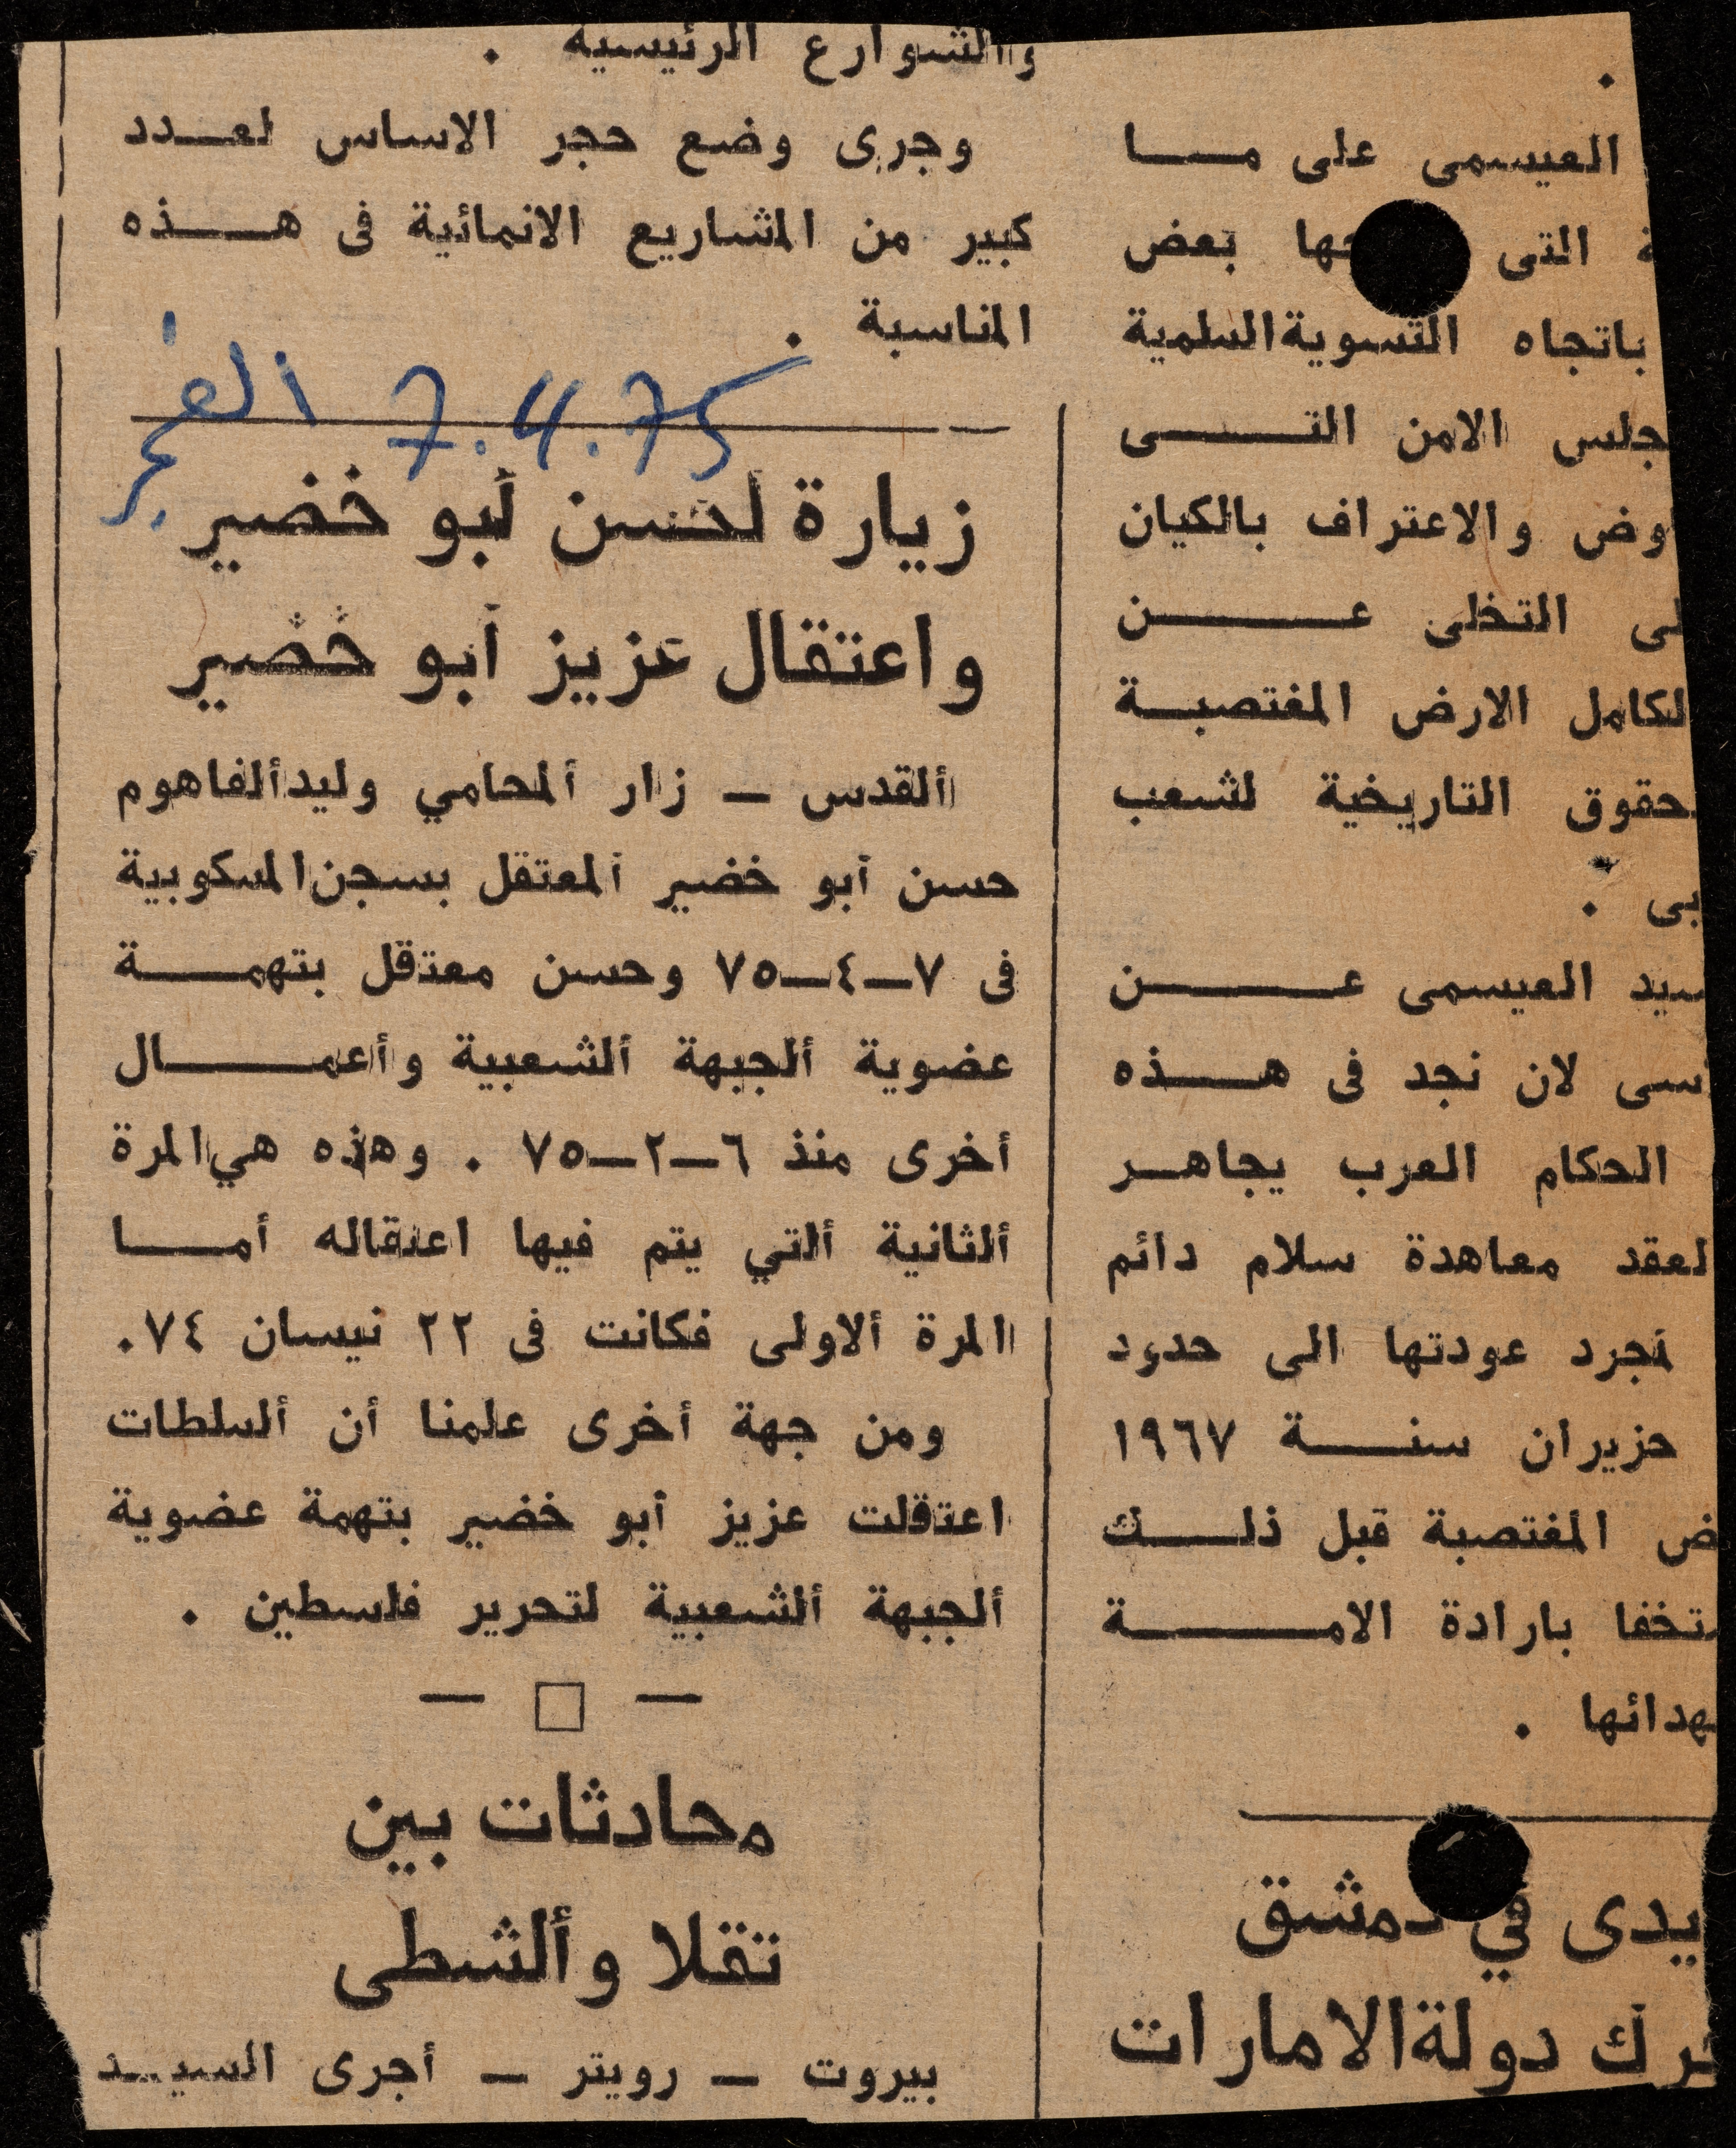 .
العيسمى على مـــا
التى بعض
باتجاه التسوية السلمية
جلس الامن التـــى
وض والاعتراف بالكيان
لى التخلى عــــن
لكامل الارض المغتصبـة
حقوق التاريخية لشعب
بى .
سيد العيسمى عــــن
سى لان نجد فى هـــذه
الحكام العرب يجاهـر
لعقد معاهدة سلام دائم
عودتها الى حدود
حزيران سنـــة ١٩٦٧
ض المغتصبة قبل ذلــك
تخفا بارادة الامــــة
هدائها .
يدى في دمشق
رك دولة الامارات
والشوارع الرئيسية .
وجرى وضع حجر الاساس لعــدد
كبير من المشاريع الانمائية فى هـــذه
المناسبة .
7.4.75 الفجر
زيارة لحسن أبو خضير
واعتقال عزيز أبو خضير
ألقدس — زار ألمحامي وليد ألفاهوم
حسن أبو خضير ألمعتقل بسجن المسكوبية
فى ٧—٤—٧٥ وحسن معتقل بتهمـــة
عضوية ألجبهة ألشعبية وأعمــــال
أخرى منذ ٦—٢—٧٥ . وهذه هي المرة
ألثانية ألتي يتم فيها اعتقاله أمـــا
المرة ألاولى فكانت فى ٢٢ نيسان ٧٤.
ومن جهة أخرى علمنا أن ألسلطات
اعتقلت عزيز أبو خضير بتهمة عضوية
ألجبهة ألشعبية لتحرير فلسطين .
— □ —
محادثات بين
تقلا وألشطى
بيروت — رويتر — أجرى السيـد